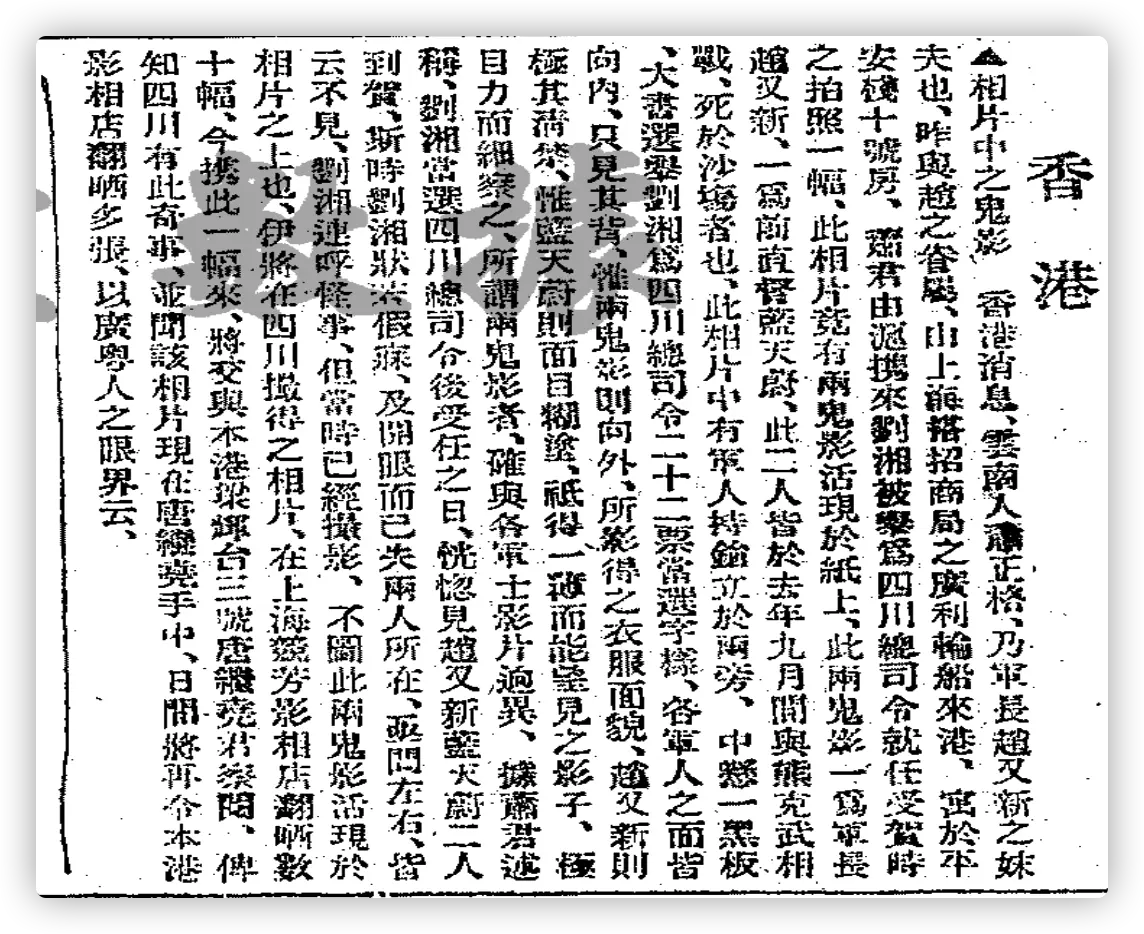 香港
▲相片中之鬼影　香港消息、雲南人蕭正格、乃軍長趙又新之妹
夫也、昨與趙之眷屬、由上海搭招商局之廣利輪船來港、寓於平
安棧十號房、蕭君由滬携來劉湘被舉爲四川總司令就任受賀時
之拍照一幅、此相片竟有兩鬼影活現於紙上、此兩鬼影一爲軍長
趙又新、一爲前直督藍天蔚、此二人皆於去年九月間與熊克武相
戰、死於沙塲者也、此相片中有軍人持鎗立於兩旁、中懸一黑板
、大書選舉劉湘爲四川總司令二十二票當選字樣、各軍人之面皆
向內、只見其背、惟兩鬼影則向外、所影得之衣服面貌、趙又新則
極其清楚、惟藍天蔚則面目糊塗、祇得一薄而能望見之影子、極
目力而細察之、所謂兩鬼影者、確與各軍士影片逈異、據蕭君述
稱、劉湘當選四川總司令後受任之日、恍惚見趙又新藍天蔚二人
到賀、斯時劉湘狀若假寐、及開眼而已失兩人所在、亟問左右、皆
云不見、劉湘連呼怪事、但當時已經攝影、不圖此兩鬼影活現於
相片之上也、伊將在四川撮得之相片、在上海競芳影相店翻晒數
十幅、今携此一幅來、將交與本港梁輝台三號唐繼堯君察閱、俾
知四川有此奇事、並聞該相片現在唐繼堯手中、日間將再令本港
影相店翻晒多張、以廣粵人之眼界云、